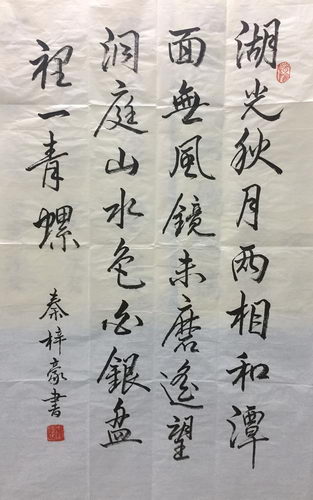 湖光秋月兩相和潭
面無風鏡未磨遙望
洞庭山水色白銀盤
裡一青螺
秦梓豪書